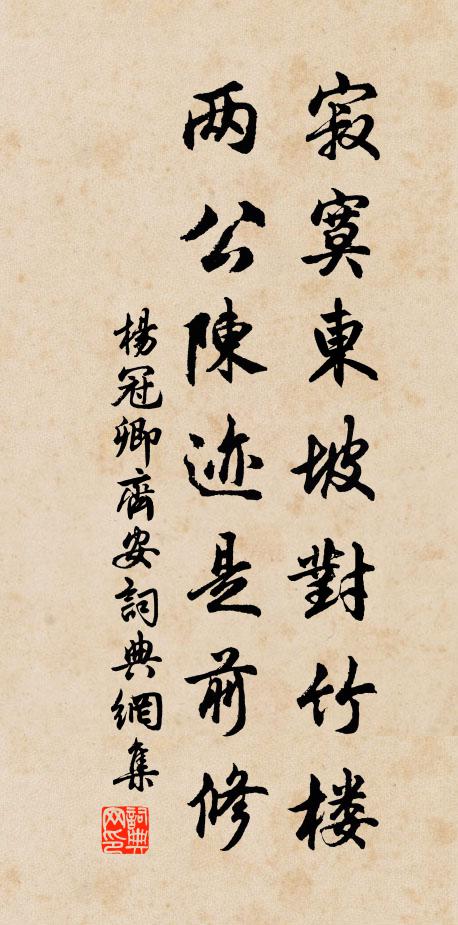 寂寞東坡對竹楼
两公陳迹是前修
楊冠卿齊安詞典網集
詞典网印